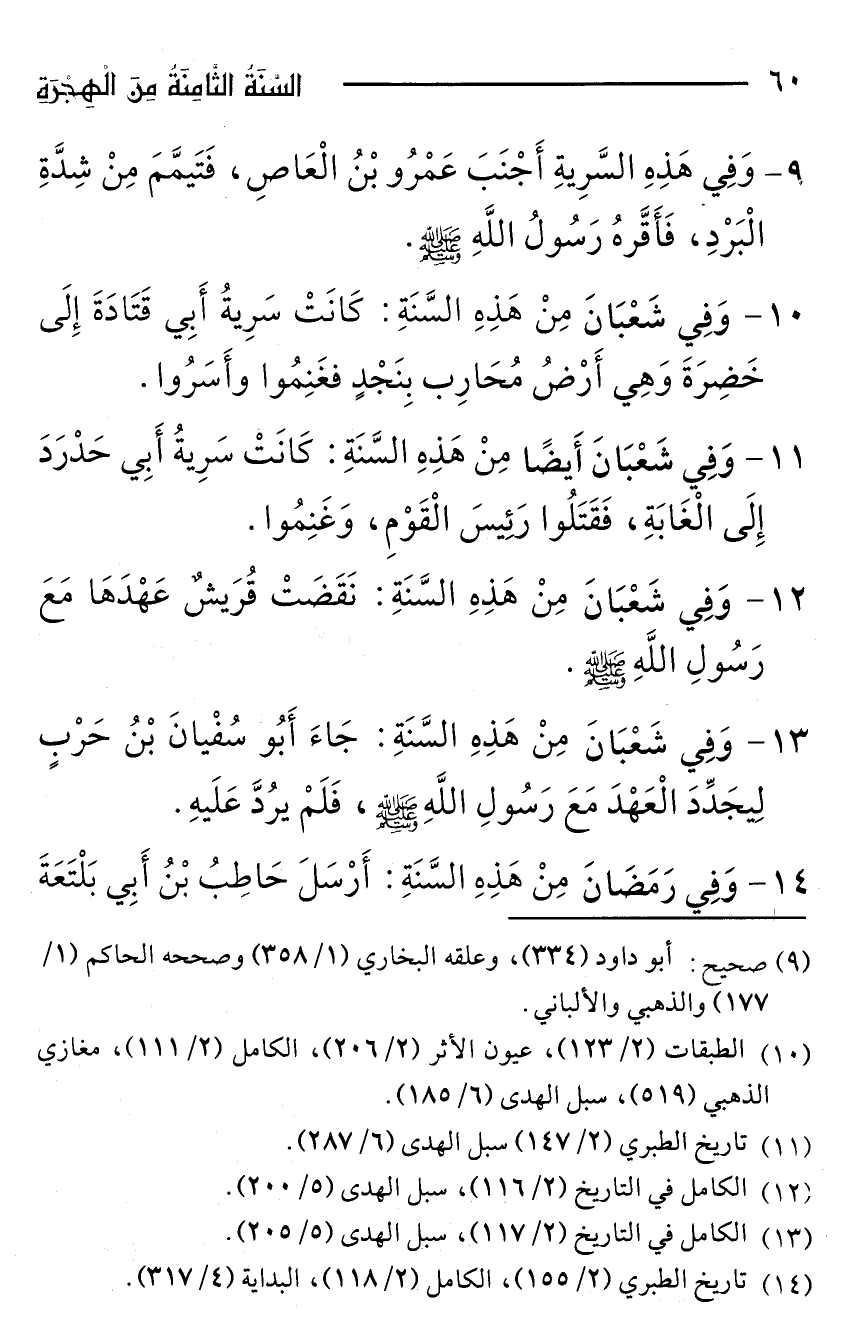 ٦٠ السَّنَةُ الثَّامِنَةُ مِنَ الْهِجْرَةِ
٩- وَفِي هَذِهِ السَّرِيةِ أَجْنَبَ عَمْرُو بْنُ الْعَاصِ، فَتَيمَّمَ مِنْ شِدَّةِ
الْبَرْدِ، فَأَقَّرهُ رَسُولُ اللَّهِ ﷺ.
١٠- وَفِي شَعْبَانَ مِنْ هَذِهِ السَّنَةِ: كَانَتْ سَرِيةُ أَبِي قَتَادَةَ إِلَى
خَضِرَةَ وَهِي أَرْضُ مُحَارِب بِنَجْدٍ فغَنِمُوا وأَسَرُوا.
١١- وَفِي شَعْبَانَ أَيضًا مِنْ هَذِهِ السَّنَةِ: كَانَتْ سَرِيةُ أَبِي حَدْرَدَ
إِلَى الْغَابَةِ، فَقَتَلُوا رَئِيسَ الْقَوْمِ، وَغَنِمُوا.
١٢- وَفِي شَعْبَانَ مِنْ هَذِهِ السَّنَةِ: نَقَضَتْ قُرَيشٌ عَهْدَهَا مَعَ
رَسُولِ اللَّهِ ﷺ.
١٣- وَفِي شَعْبَانَ مِنْ هَذِهِ السَّنَةِ: جَاءَ أَبُو سُفْيانَ بْنُ حَرْبٍ
لِيجَدِّدَ الْعَهْدَ مَعَ رَسُولِ اللَّهِ ﷺ، فَلَمْ يرُدَّ عَلَيهِ.
١٤- وَفِي رَمَضَانَ مِنْ هَذِهِ السَّنَةِ: أَرْسَلَ حَاطِبُ بْنُ أَبِي بَلْتَعَةَ
(٩) صحيح: أبو داود (٣٣٤)، وعلقه البخاري (١/ ٣٥٨) وصححه الحاكم (١/
١٧٧) والذهبي والألباني.
(١٠) الطبقات (٢/ ١٢٣)، عيون الأثر (٢/ ٢٠٦)، الكامل (٢/ ١١١)، مغازي
الذهبي (٥١٩)، سبل الهدى (٦/ ١٨٥).
(١١) تاريخ الطبري (٢/ ١٤٧) سبل الهدى (٦/ ٢٨٧).
(١٢) الكامل في التاريخ (٢/ ١١٦)، سبل الهدى (٥/ ٢٠٠).
(١٣) الكامل في التاريخ (٢/ ١١٧)، سبل الهدى (٥/ ٢٠٥).
(١٤) تاريخ الطبري (٢/ ١٥٥)، الكامل (٢/ ١١٨)، البداية (٤/ ٣١٧).